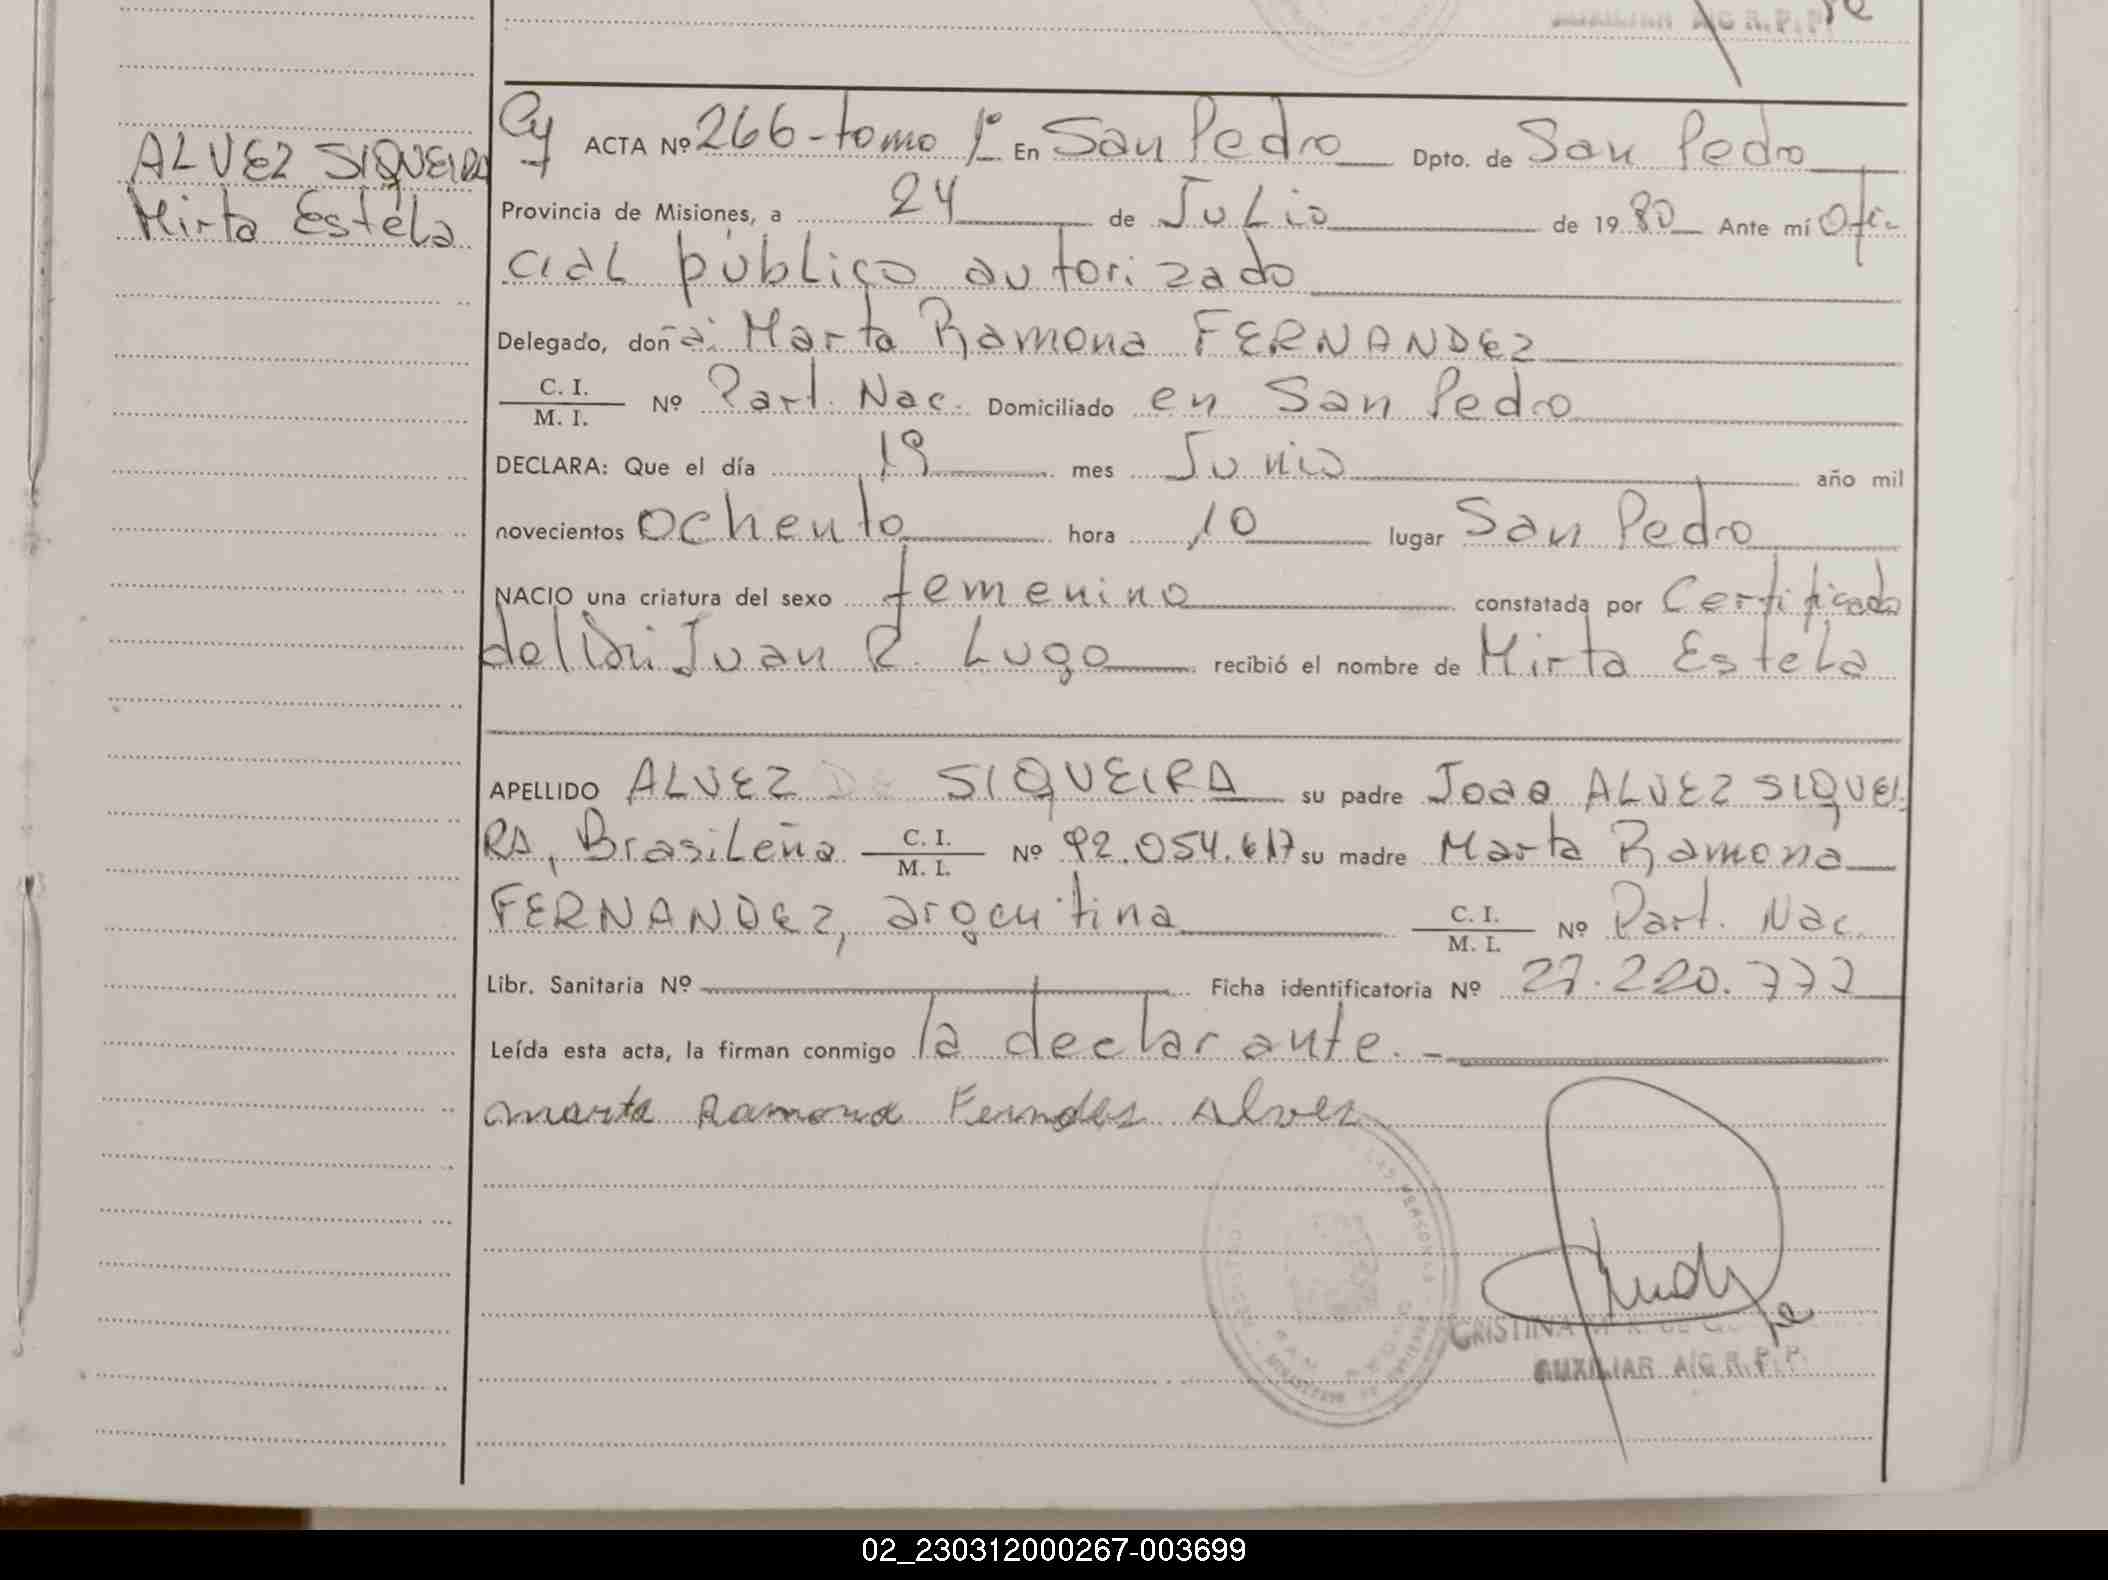 AUXILIAR A/C R.P.P.
ALVEZ SIQUEIRA
Mirta Estela
ACTA Nº 266-tomo 1º En San Pedro Dpto. de San Pedro
Provincia de Misiones, a 24 de Julio de 1980 Ante mí Ofi-
cial público autorizado
Delegado, doña: Marta Ramona FERNANDEZ
C. I.
M. I. Nº Part. Nac. Domiciliado en San Pedro
DECLARA: Que el día 19 mes Junio año mil
novecientos ochenta hora 10 lugar San Pedro
NACIO una criatura del sexo femenino constatada por Certificado
del Juan R. Lugo recibió el nombre de Mirta Estela
APELLIDO ALVEZ DE SIQUEIRA su padre Joao ALVEZ SIQUEI
RA, Brasileña C. I. M. I. Nº 92.054.617 su madre Marta Ramona
FERNANDEZ, argentina C. I. M. I. Nº Part. Nac.
Libr. Sanitaria Nº Ficha identificatoria Nº 27.220.777
Leída esta acta, la firman conmigo la declarante.-
Marta RamonaFerndes Alvez
CRISTINA
AUXILIAR A/C R.P.P.
02_230312000267-003699